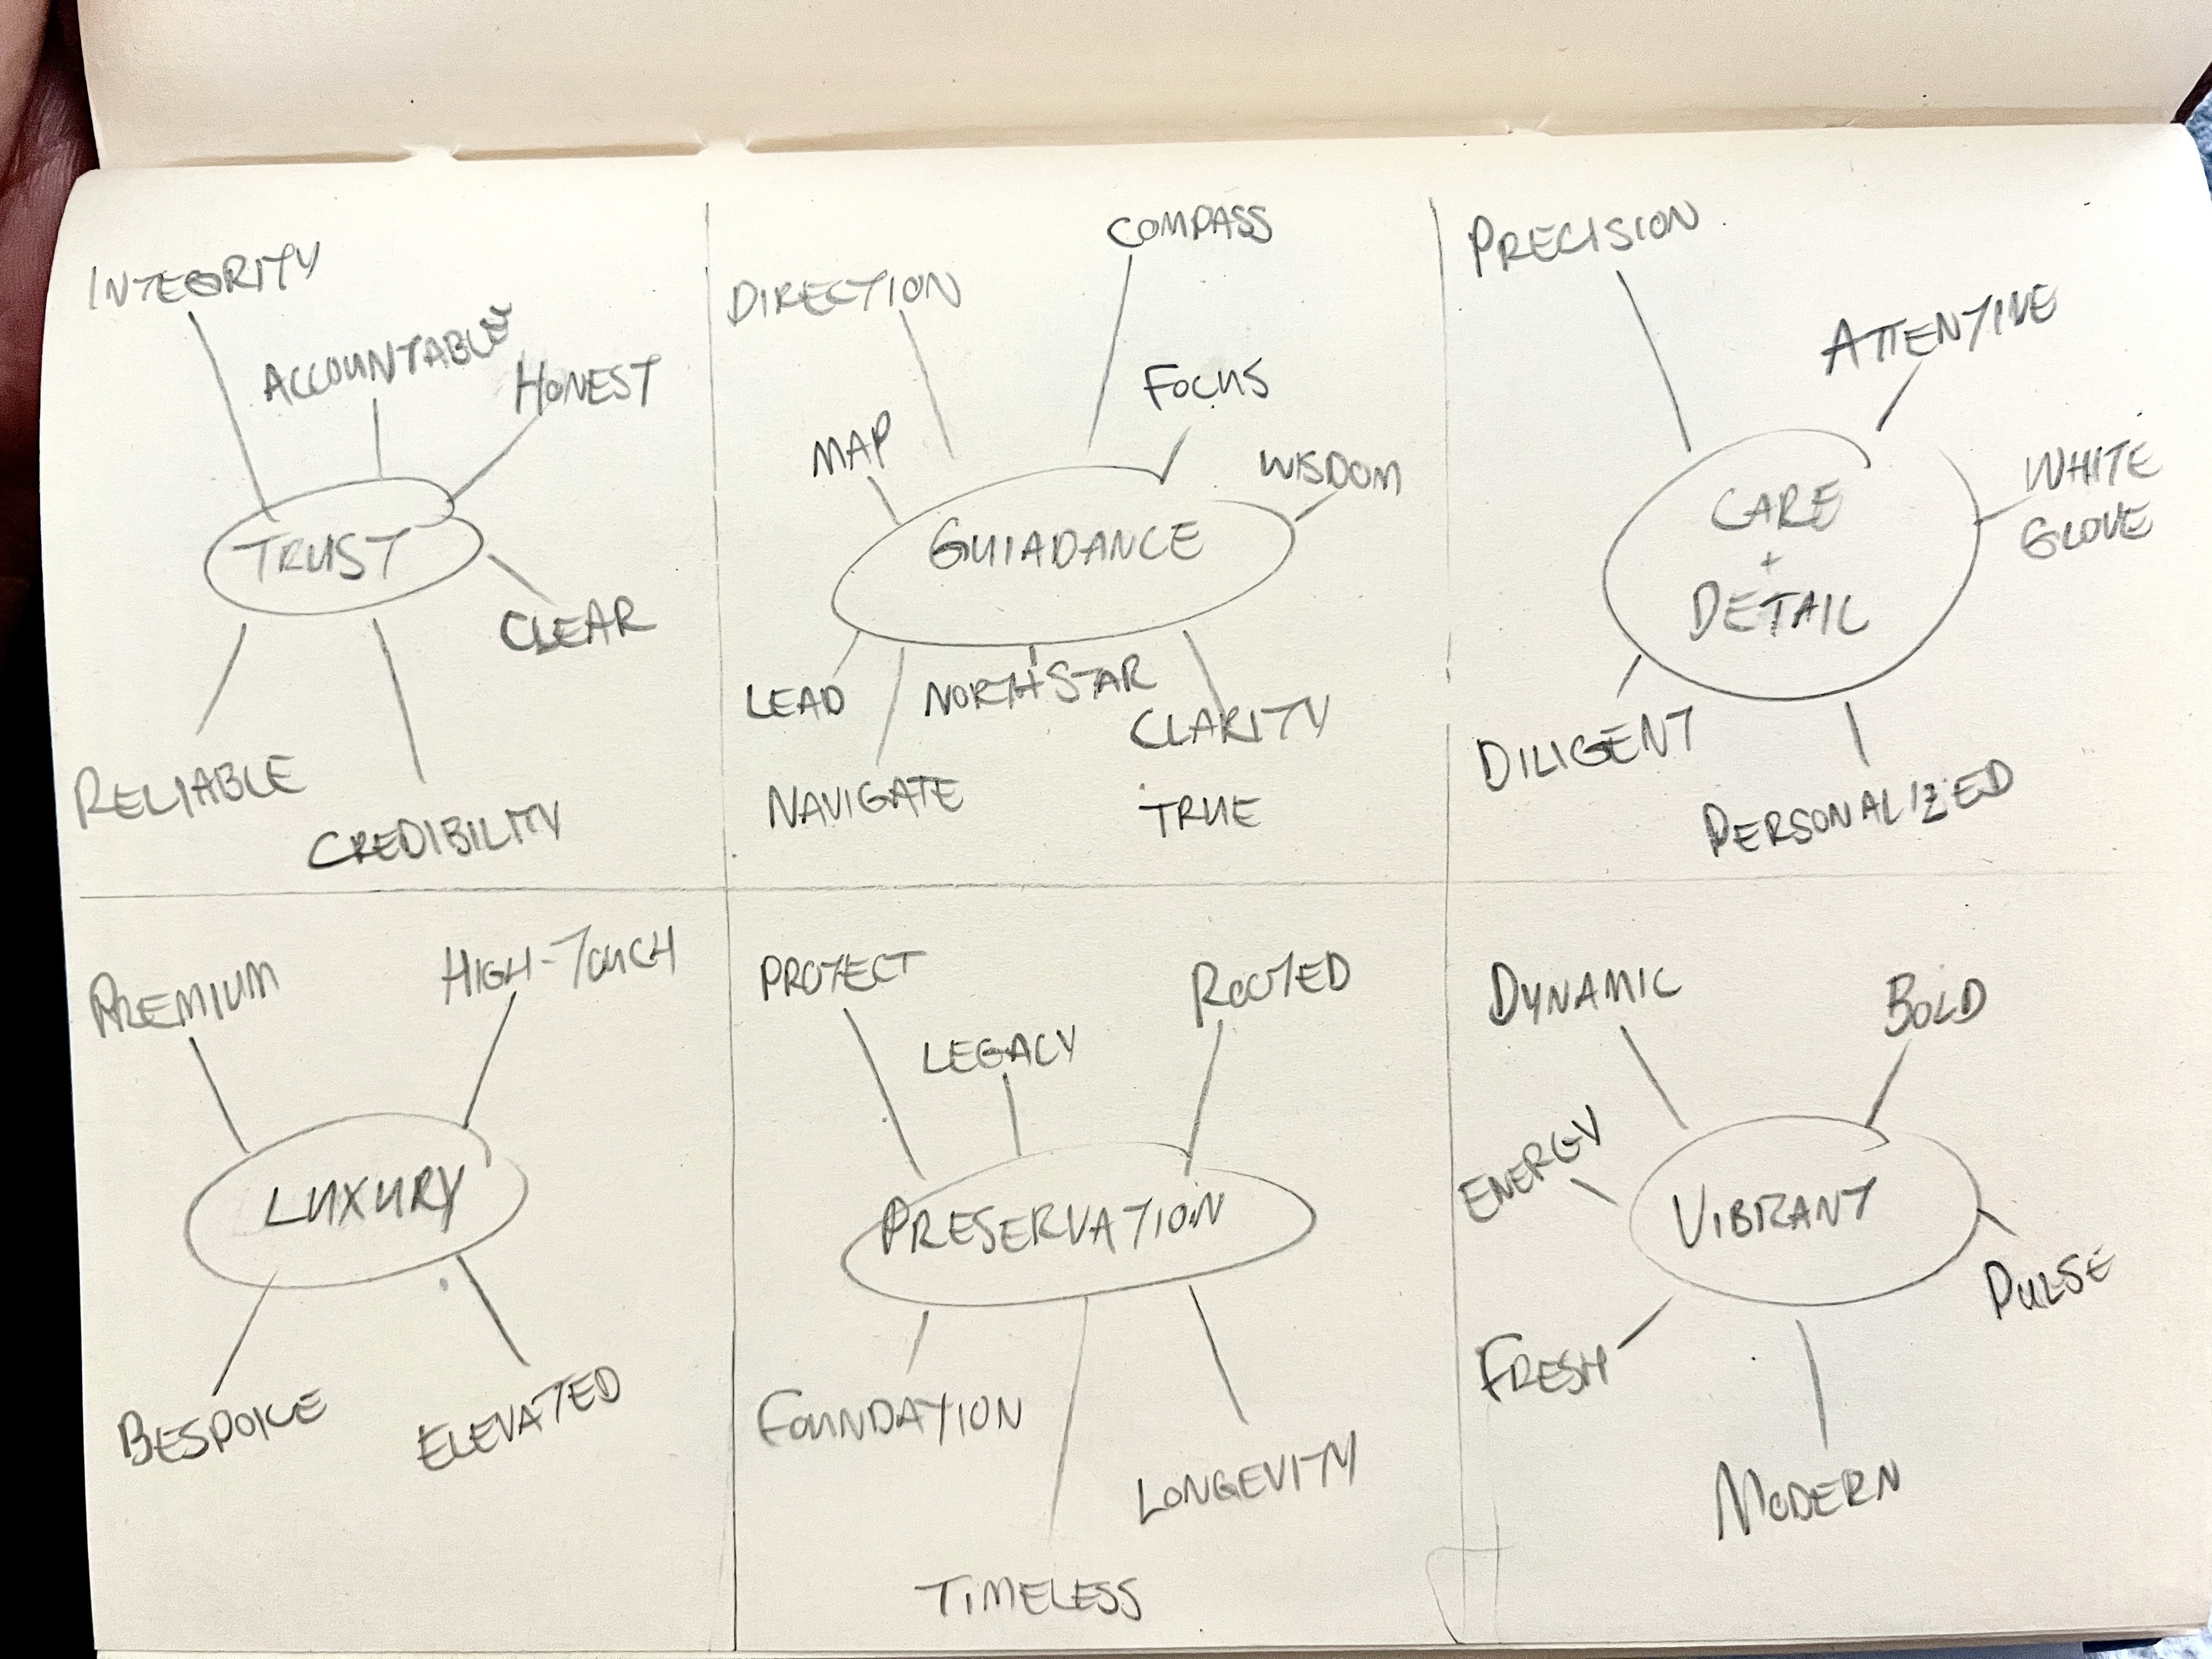 INTEGRITY
ACCOUNTABLE
HONEST
TRUST
CLEAR
RELIABLE
CREDIBILITY
COMPASS
DIRECTION
FOCUS
MAP
WISDOM
GUIADANCE
LEAD
NORTH STAR
CLARITY
NAVIGATE
TRUE
PRECISION
ATTENTIVE
WHITE
GLOVE
CARE
+
DETAIL
DILIGENT
PERSONALIZED
PREMIUM
HIGH-TOUCH
LUXURY
BESPOKE
ELEVATED
PROTECT
ROOTED
LEGACY
PRESERVATION
FOUNDATION
LONGEVITY
TIMELESS
DYNAMIC
BOLD
ENERGY
VIBRANT
PULSE
FRESH
MODERN